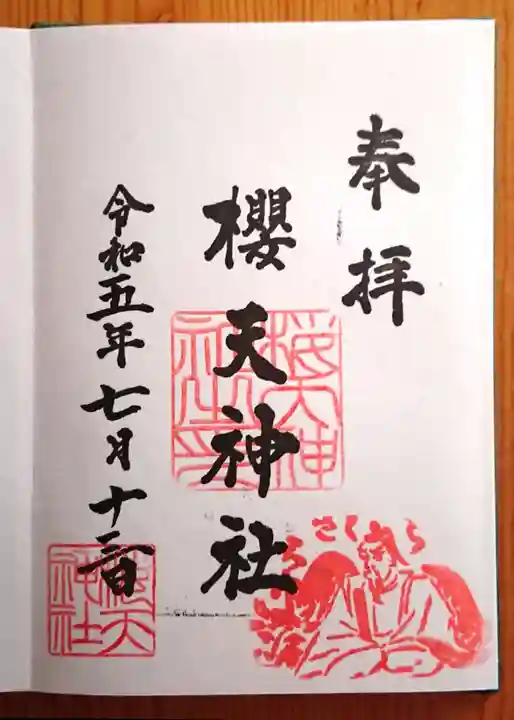 奉拝
櫻天神社
令和五年七月十二日
櫻天神
社之印
さくら
櫻天
神社